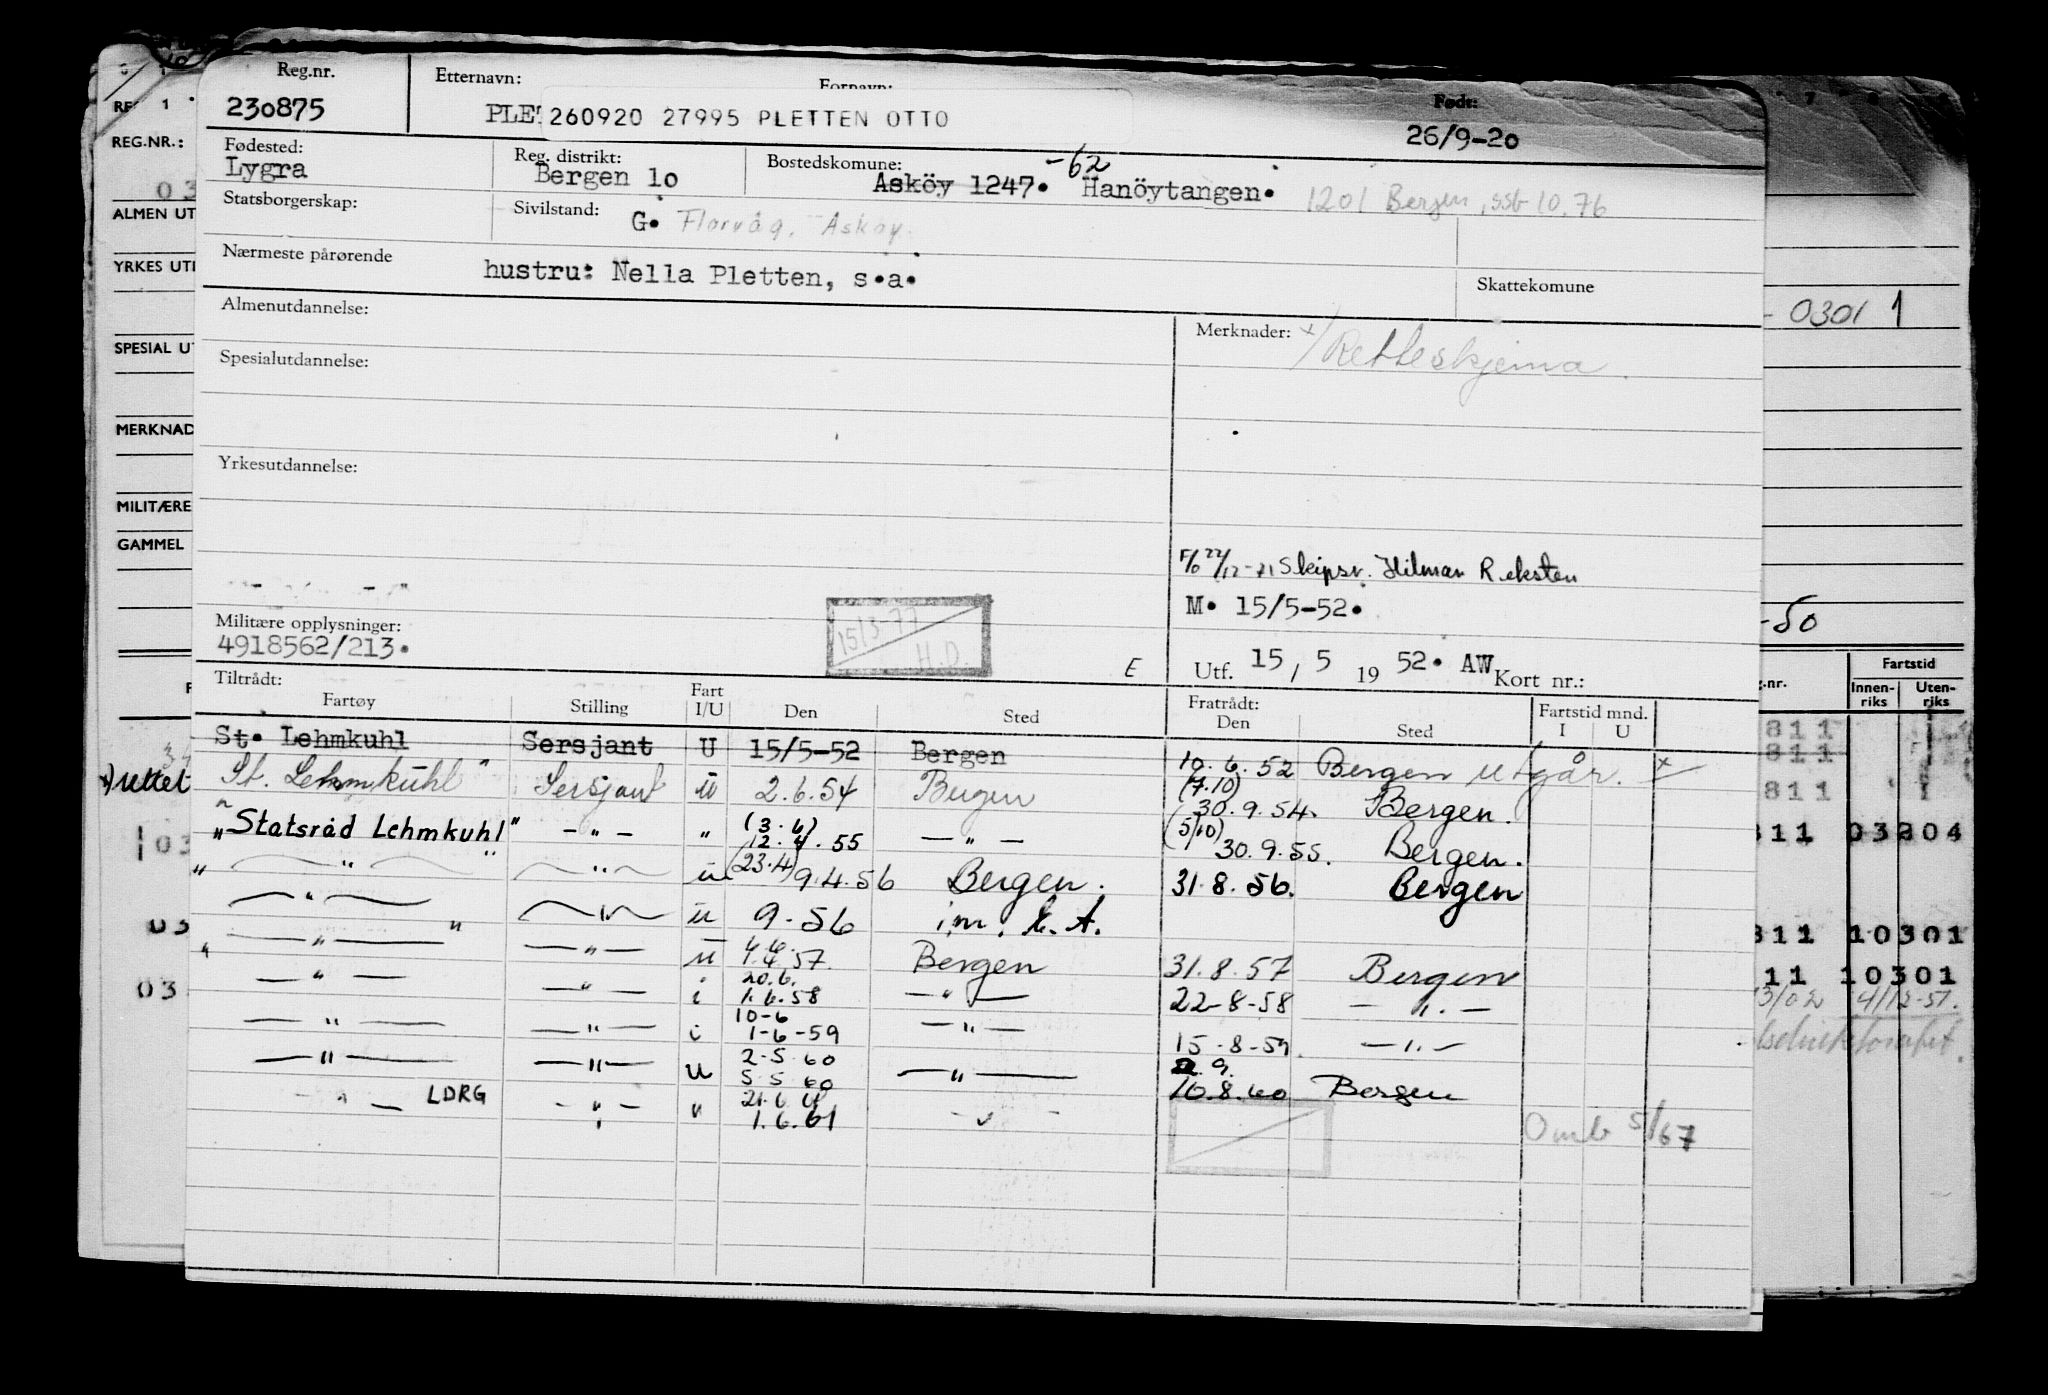 Reg.nr. Etternavn: Fornavn: Født:
230875 PLET 260920 27995 PLETTEN OTTO 26/9-20
Fødested: Reg. distrikt: Bostedskomune: -62
Lygra Bergen 10 Asköy 1247. Hanöytangen. 1201 Bergen, ssb 10.76
Statsborgerskap: Sivilstand: G. Florvåg, Askøy.
Nærmeste pårørende hustru: Nella Pletten, s.a. Skattekomune
Almenutdannelse: Merknader: x/ Retteskjema.
Spesialutdannelse:
Yrkesutdannelse:
Skipsr. Hilmar Reksten
M. 15/5-52.
Militære opplysninger:
4918562/213.
15/3-77
H.D.
E Utf. 15 / 5 19 52. AW Kort nr.:
Tiltrådt: Fratrådt:
Fartøy Stilling Fart I/U Den Sted Den Sted Fartstid mnd. I U
St. Lehmkuhl Sersjant U 15/5-52 Bergen 10.6.52 Bergen utgår. x
x) rettet St. Lehmkuhl" Sersjant u 2.6.54 Bergen (7.10) 30.9.54. Bergen.
"Statsråd Lehmkuhl" —"— " (3.6) 12.4.55 —"— (5/10) 30.9.55. Bergen.
" — " — " —"— u (23.4) 9.4.56 Bergen. 31.8.56. Bergen
—"— " —"— u 9-56 im.
" —"— —"— u 4.4.57 Bergen 31.8.57 Bergen
—"— —"— i 20.6. 1.6.58 —"— 22-8-58 —"—
—"— —"— i 10-6 1-6-59 —"— 15-8-59. —"—
—"— —"— U 2-5-60 5.5.60 —"— 9. 10.8.60 Bergen
—"— LDRG —"— " 21.6.61 1.6.61 —"—
Omb 5/67
RE 1
REG.NR.:
03
ALMEN UT
YRKES UTI
SPESIAL UT
MERKNAD
MILITÆRE
GAMMEL
F
03
03
03
7
- 0301 1
-50
g.nr. Fartstid
Innen-riks Uten-riks
811
811
811 1
811 03204
811 10301
11 10301
13/02 4/12-57.